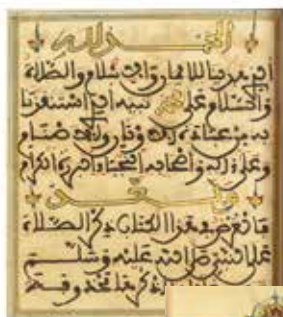 الحمد لله
الذي هدانا للايمان والاسلام والصلاة
والسلام على محمد نبيه الذي استنقذنا
به من عبادة الاوثان والاصنام
وعلى ءاله واصحابه النجباء البررة الكرام
وبعد
فالغرض في هذا الكتاب ذكر الصلاة
على النبي صلى الله عليه وسلم
نذكرها محذوفة